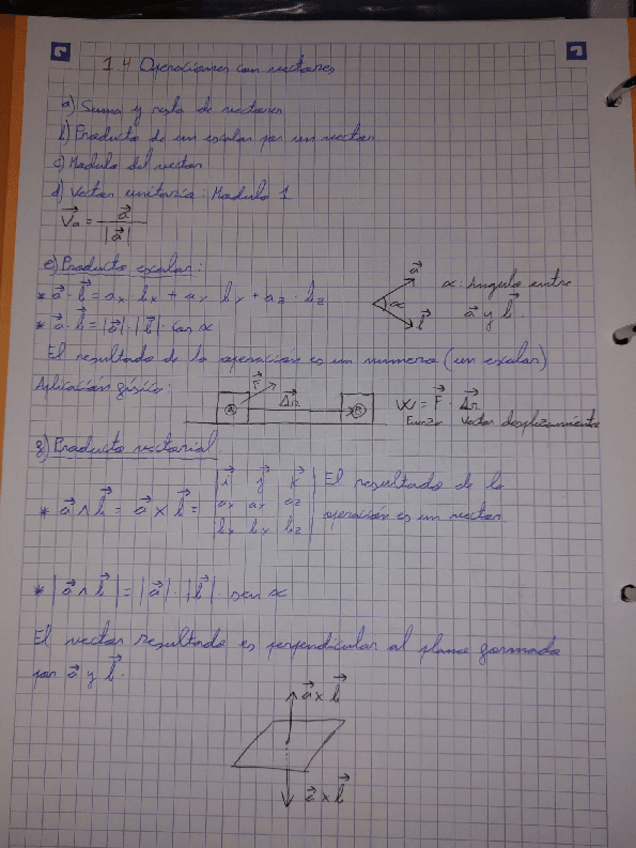 1.4 Operaciones con vectores
a) Suma y resta de vectores
b) Producto de un escalar por un vector
c) Modulo del vector
d) Vector unitario: Modulo 1
V⃗a = a⃗ / |a⃗|
e) Producto escalar:
* a⃗ · b⃗ = ax · bx + ay · by + az · bz
* a⃗ · b⃗ = |a⃗| · |b⃗| · cos α
a⃗
α
b⃗
α: Angulo entre
a⃗ y b⃗.
El resultado de la operación es un numero (un escalar)
Aplicación física:
F⃗
A
Δ⃗r
B
W = F⃗ · Δ⃗r
Fuerza Vector desplazamiento
f) Producto vectorial
* a⃗ ∧ b⃗ = a⃗ x b⃗ =
i⃗ j⃗ k⃗
ax ay az
bx by bz
El resultado de la
operación es un vector
* |a⃗ ∧ b⃗| = |a⃗| · |b⃗| · sen α
El vector resultado es perpendicular al plano formado
por a⃗ y b⃗.
a⃗ x b⃗
a⃗ x b⃗